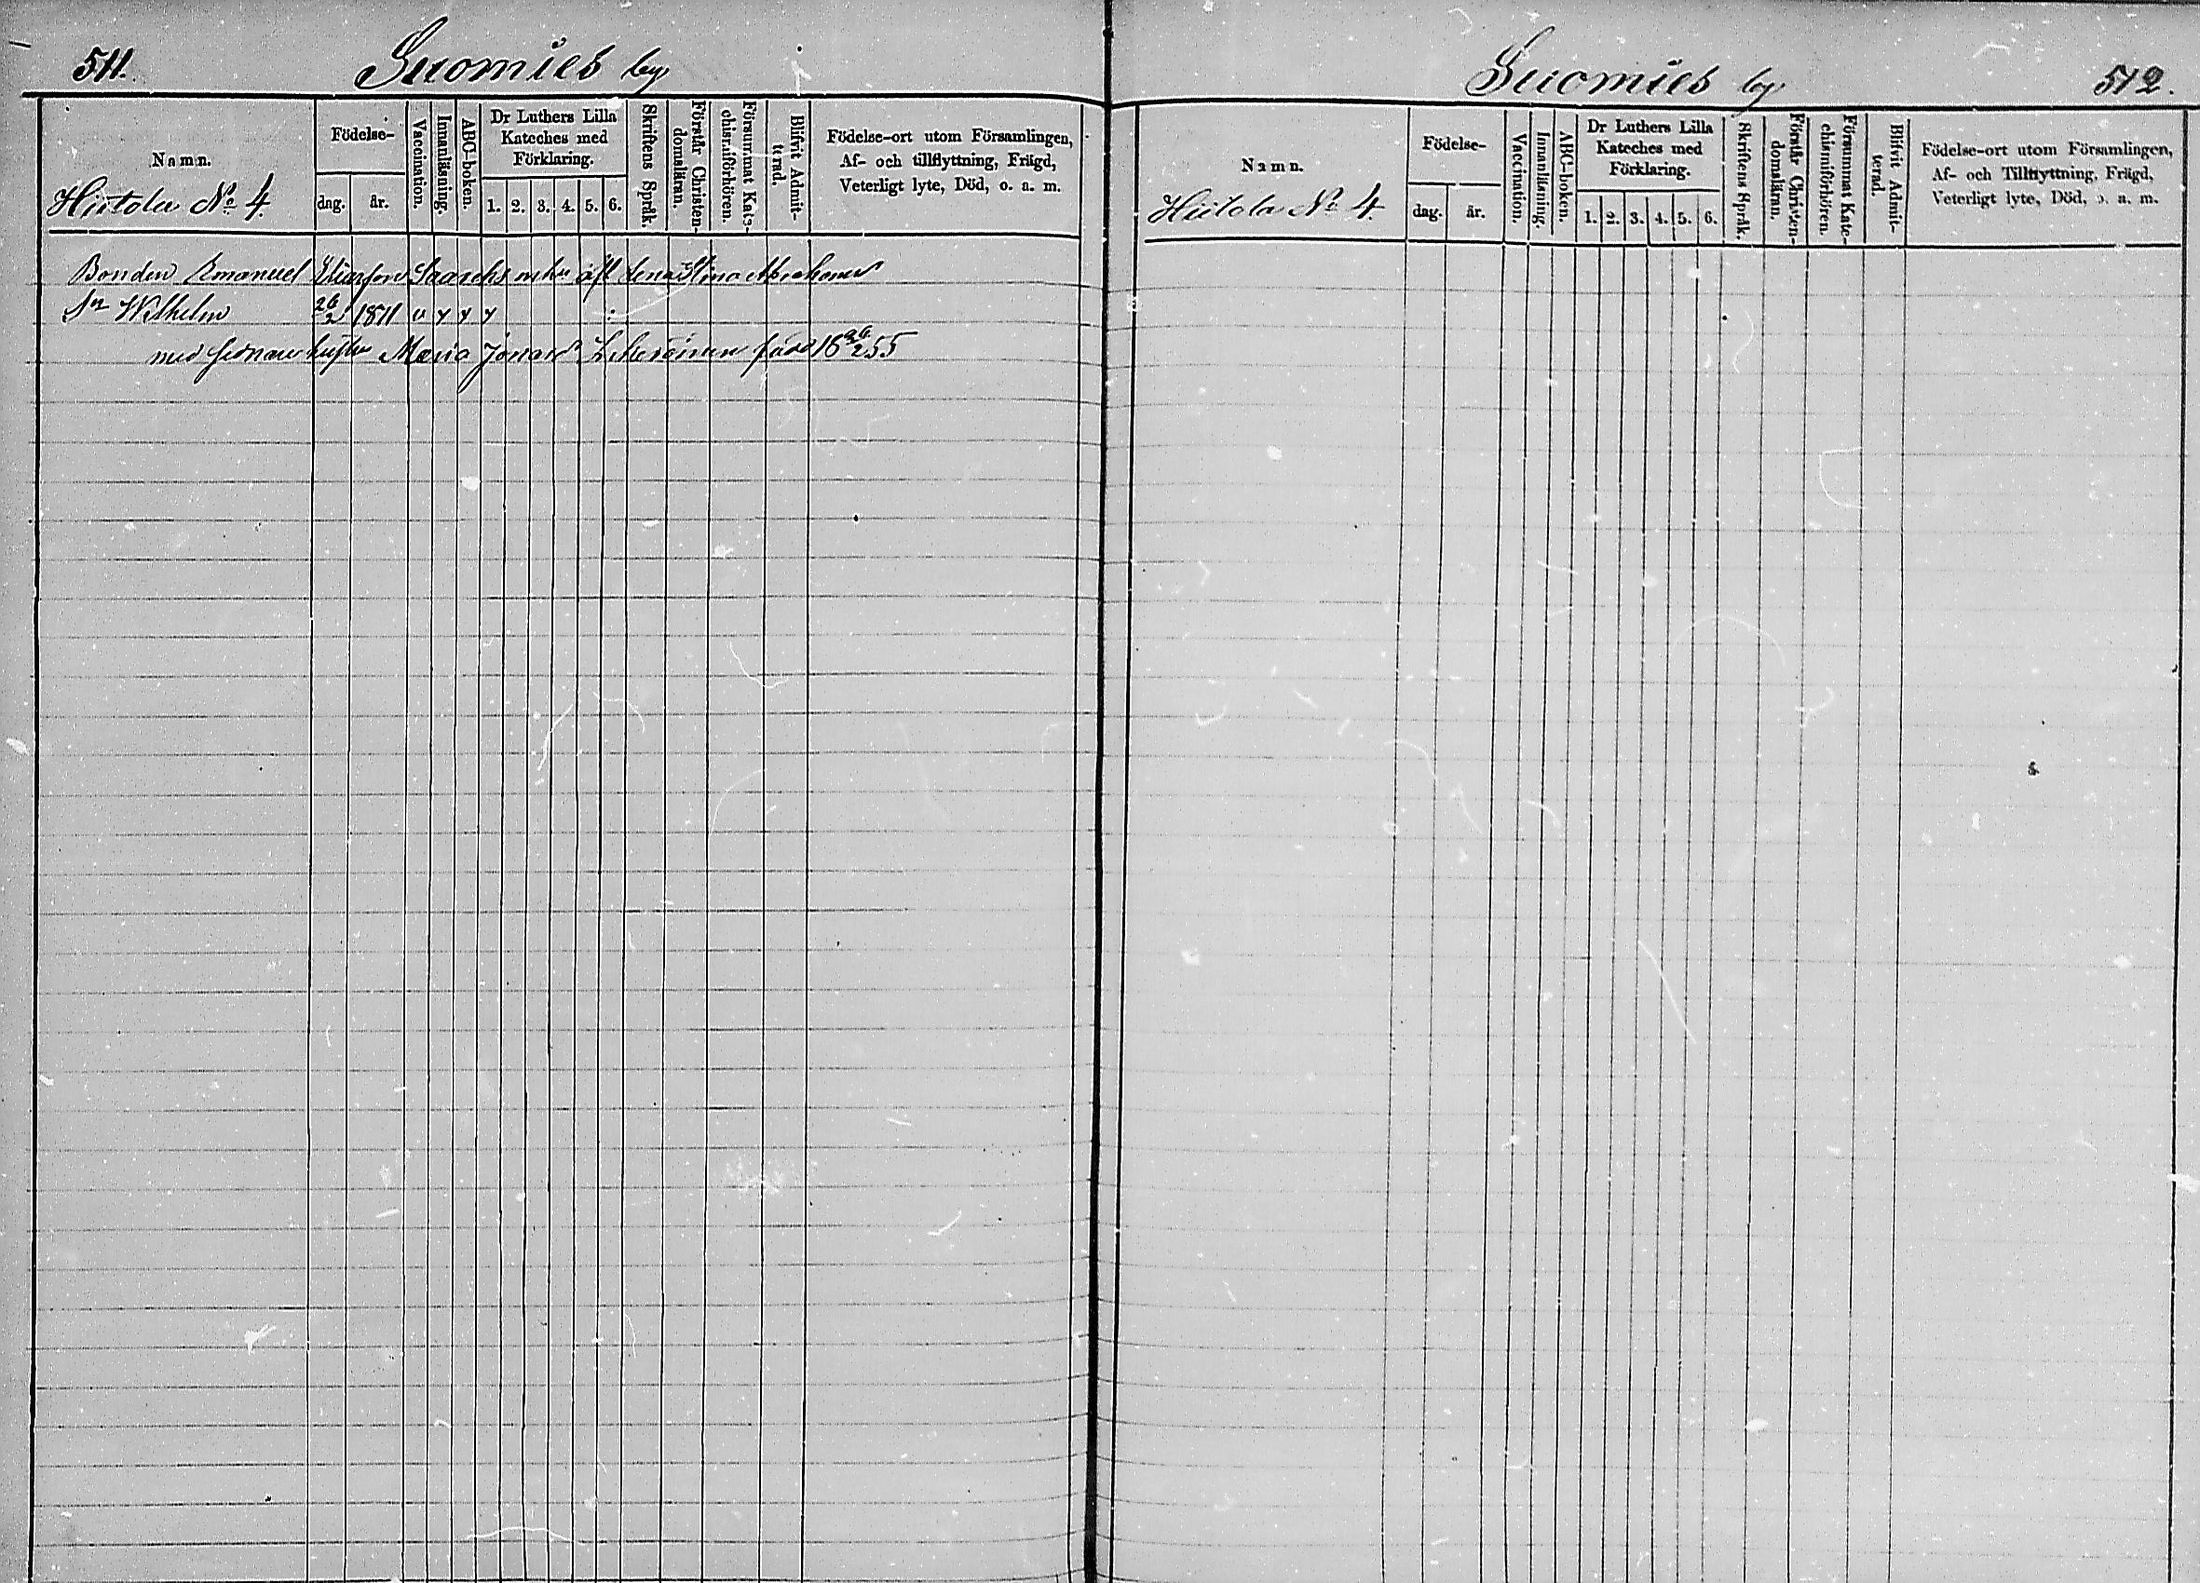 511.
Suomies by
Namn.
Hiitola No 4.
Födelse-
dag. år.
Vaccination.
Innanläsning.
ABC-boken.
Dr Luthers Lilla
Kateches med
Förklaring.
1. 2. 3. 4. 5. 6.
Skriftens Språk.
Förstår Christen-
domsläran.
Försummat Kate-
chismiförhören.
Blifvit Admit-
terad.
Födelse-ort utom Församlingen,
Af- och tillflyttning, Frägd,
Veterligt lyte, Död, o. a. m.
Bonden Emanuel Eliasson
Wilhelm 26/2 1871
med sednare hustru Maria född 18 26/2 55
Suomies by
512.
Namn.
Hiitola No 4
Födelse-
dag. år.
Vaccination.
Innanläsning.
ABC-boken.
Dr Luthers Lilla
Kateches med
Förklaring.
1. 2. 3. 4. 5. 6.
Skriftens Språk.
Förstår Christen-
domsläran.
Försummat Kate-
chismiförhören.
Blifvit Admit-
terad.
Födelse-ort utom Församlingen,
Af- och Tillflyttning, Frägd,
Veterligt lyte, Död, o. a. m.